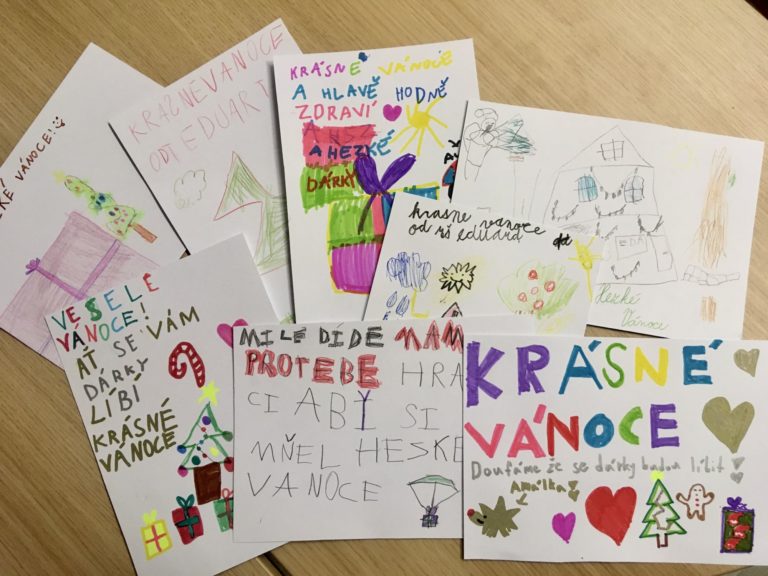 KÉ VÁNOCE!
KRÁSNÉ VÁNOCE
ODT EDUART
KRÁSNÉ VÁNOCE
A HLAVĚ HODNĚ
ZDRAVÍ
A HEZKÉ
DÁRKY
krasne vanoce
od mš eduard
EDA
Hezké
Vánoce
VESELÉ
VÁNOCE!
AŤ SE VÁM
DÁRKY
LÍBÍ
KRÁSNÉ
VÁNOCE
MILÉ DÍDĚ MÁM
PROTEBE HRA
CI ABY SI
MŇEL HESKE
VANOCE
KRÁSNÉ
VÁNOCE
Doufáme že se dárky budou líbit!
Amálka